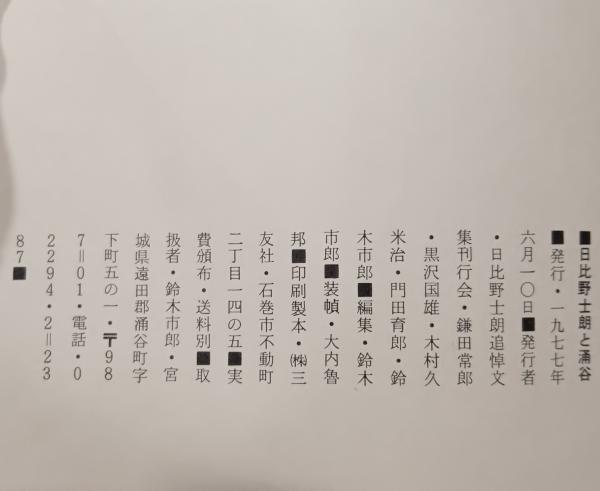 ■日比野士朗と涌谷
■発行・一九七七年
六月一〇日■発行者
・日比野士朗追悼文
集刊行会・鎌田常郎
・黒沢国雄・木村久
米治・門田育郎・鈴
木市郎■編集・鈴木
市郎■装幀・大内魯
邦■印刷製本・㈱三
友社・石巻市不動町
二丁目一四の五■実
費頒布・送料別■取
扱者・鈴木市郎・宮
城県遠田郡涌谷町字
下町五の一・〒98
7=01・電話・0
2294・2=23
87■